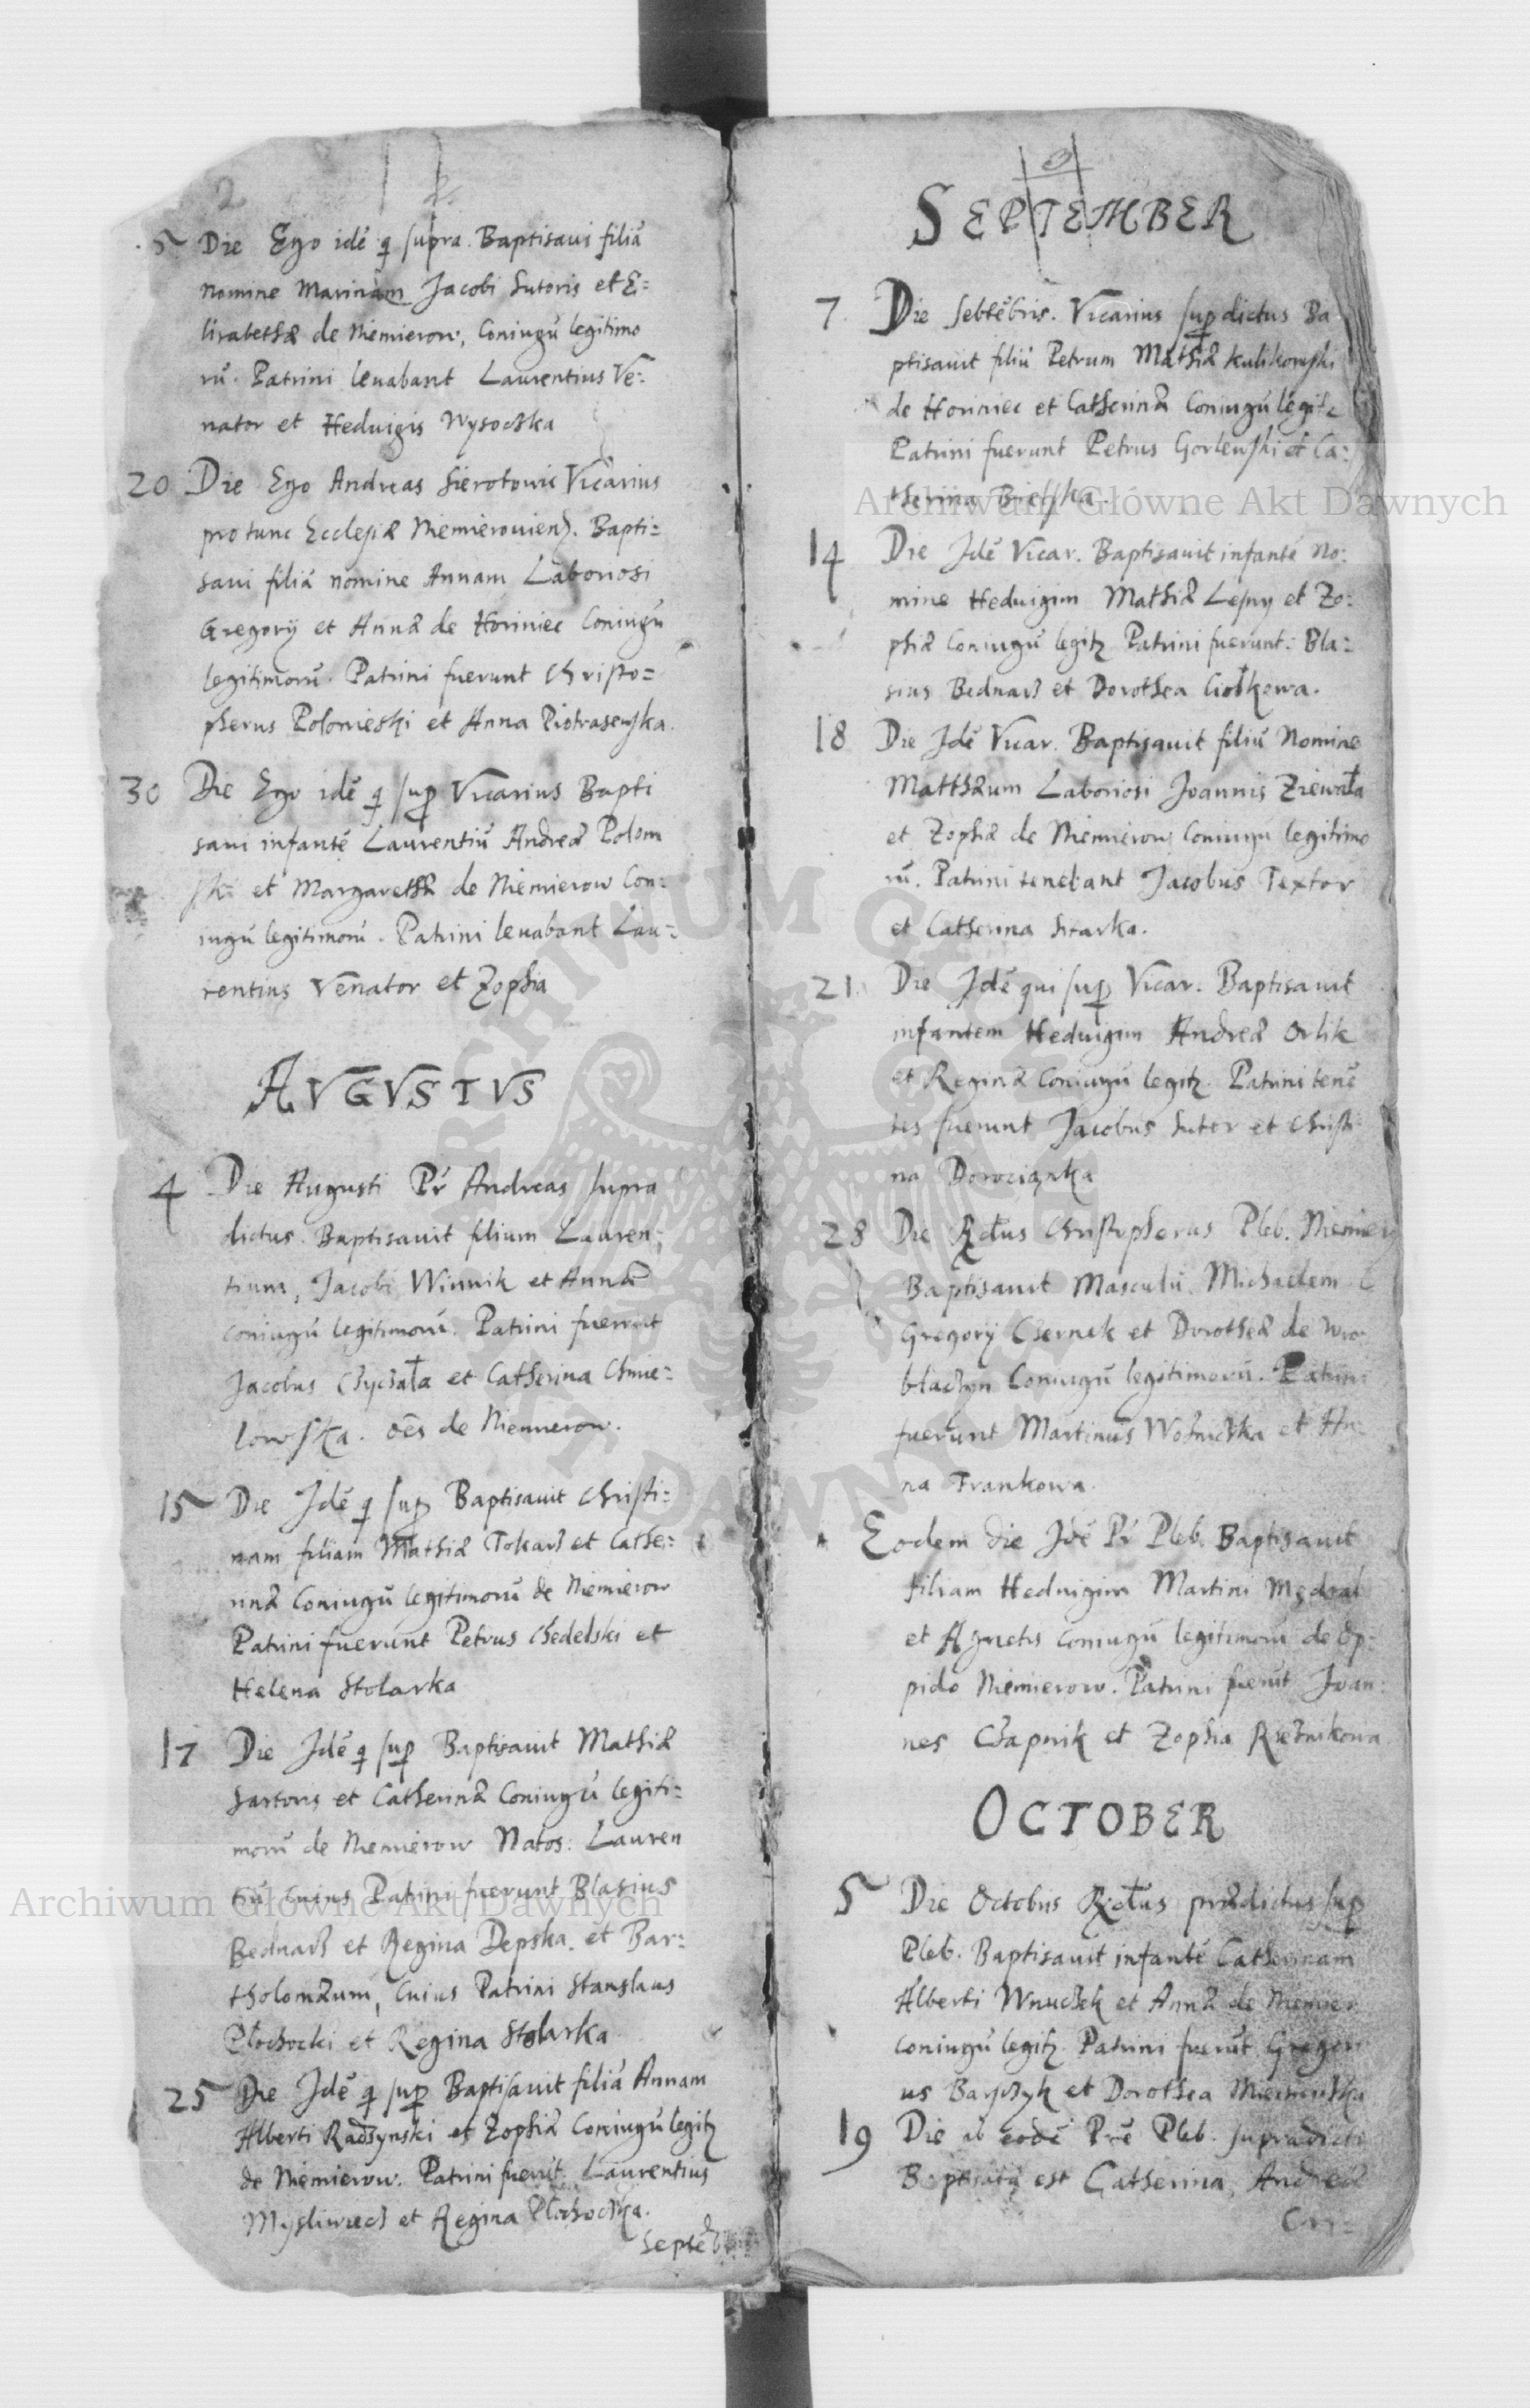 2
5 Die Ego idē q supra. Baptisavi filiā
nomine Marinam Jacobi Sutoris et E=
lisabethæ de Niemierow, Coniugū legitimo
rū. Patrini levabant Laurentius Ve=
nator et Heduigis Wysoczka
20 Die Ego Andreas Sierotowic Vicarius
pro tunc Ecclesiæ Niemierouiens. Bapti=
saui filiā nomine Annam Laboriosi
Gregorÿ et Annæ de Horiniec Coniugū
legitimorū. Patrini fuerunt Christo=
pherus Polonieski et Anna Piotrasewska.
30 Die Ego idē q sup Vicarius Bapti
saui infantē Laurentiū Andreæ Polom
ski et Margarethæ de Niemierow Con=
iugū legitimorū. Patrini leuabant Lau=
rentius Venator et Zophia
AVGVSTVS
4 Die Augusti Pr Andreas supra
dictus. Baptisauit filium Lauren=
tium, Jacobi Winnik et Annæ
coniugū legitimorū. Patrini fuerunt
Jacobus Czyczała et Catherina Chmie=
lowska. oēs de Niemierow.
15 Die Jdē q sup Baptisauit Christi=
nam filiam Mathiæ Tokarz et Cathe=
rinæ Coniugū legitimorū de Niemierow
Patrini fuerunt Petrus Chedelski et
Helena Stolarka
17 Die Jdē q sup Baptisauit Mathiæ
Sartoris et Catherinæ Coniugū legiti=
morū de Niemierow Natos: Lauren
tiū cuius Patrini fuerunt Blasius
Bednarz et Regina Depska. et Bar=
tholomæum, Cuius Patrini Stanslaus
Płochocki et Regina Stolarka
25 Die Jdē q sup Baptisauit filiā Annam
Alberti Radzynski et Zophiæ Coniugū legitz
de Niemierow. Patrini fuerūt Laurentius
Mysliwiecz et Regina Płochoczka.
Septēb
3
SEPTEMBER
7 Die Sebtēbris. Vicarius supdictus Ba
ptisauit filiū Petrum Mathiæ Kulikowski
de Horiniec et Catherinæ Coniugū legitz
Patrini fuerunt Petrus Gorlewski et Ca=
therina Bielska.
14 Die Jdē Vicar. Baptisauit infantē No=
mine Heduigim Mathiæ Lesny et Zo=
phiæ Coniugū legitz Patrini fuerunt: Bla=
sius Bednarz et Dorothea Ciołkowa.
18 Die Jdē Vicar. Baptisauit filiū Nomine
Matthæum Laboriosi Joannis Ziewała
et Zophiæ de Niemierow Coniugū legitimo
rū. Patrini tenebant Jacobus Textor
et Catherina Sitarka.
21 Die Jdē qui sup Vicar. Baptisauit
infantem Heduigim Andreæ Orlik
et Reginæ Coniugū legitz. Patrini tenē
tes fuerunt Jacobus Sutor et Christi
na Dorociąnka
28 Die Rdus Christopherus Pleb. Niemier
Baptisauit Masculū Michaelem
Gregorÿ Czernek et Dorotheæ de Wro
blaczyn Coniugū legitimorū. Patrini
fuerunt Martinus Wozniczka et An=
na Frankowa.
Eodem die Jdē Pr Pleb. Baptisauit
filiam Heduigim Martini Mędral
et Agnetis Coniugū legitimorū de Op=
pido Niemierow. Patrini fuerūt Joan=
nes Czapnik et Zophia Rzeznikowa
OCTOBER
5 Die Octobris Rdus prædictus sup
Pleb. Baptisauit infantē Catherinam
Alberti Wnuczek et Annæ de Niemier
coniugū legitz. Patrini fuerūt Gregori
us Barszyk et Dorothea
19 Die ab eodē Prē Pleb. supradicto
Baptisata est Catherina, Andreæ
Archiwum Główne Akt Dawnych
Archiwum Główne Akt Dawnych
ARCHIWUM GŁÓWNE AKT DAWNYCH